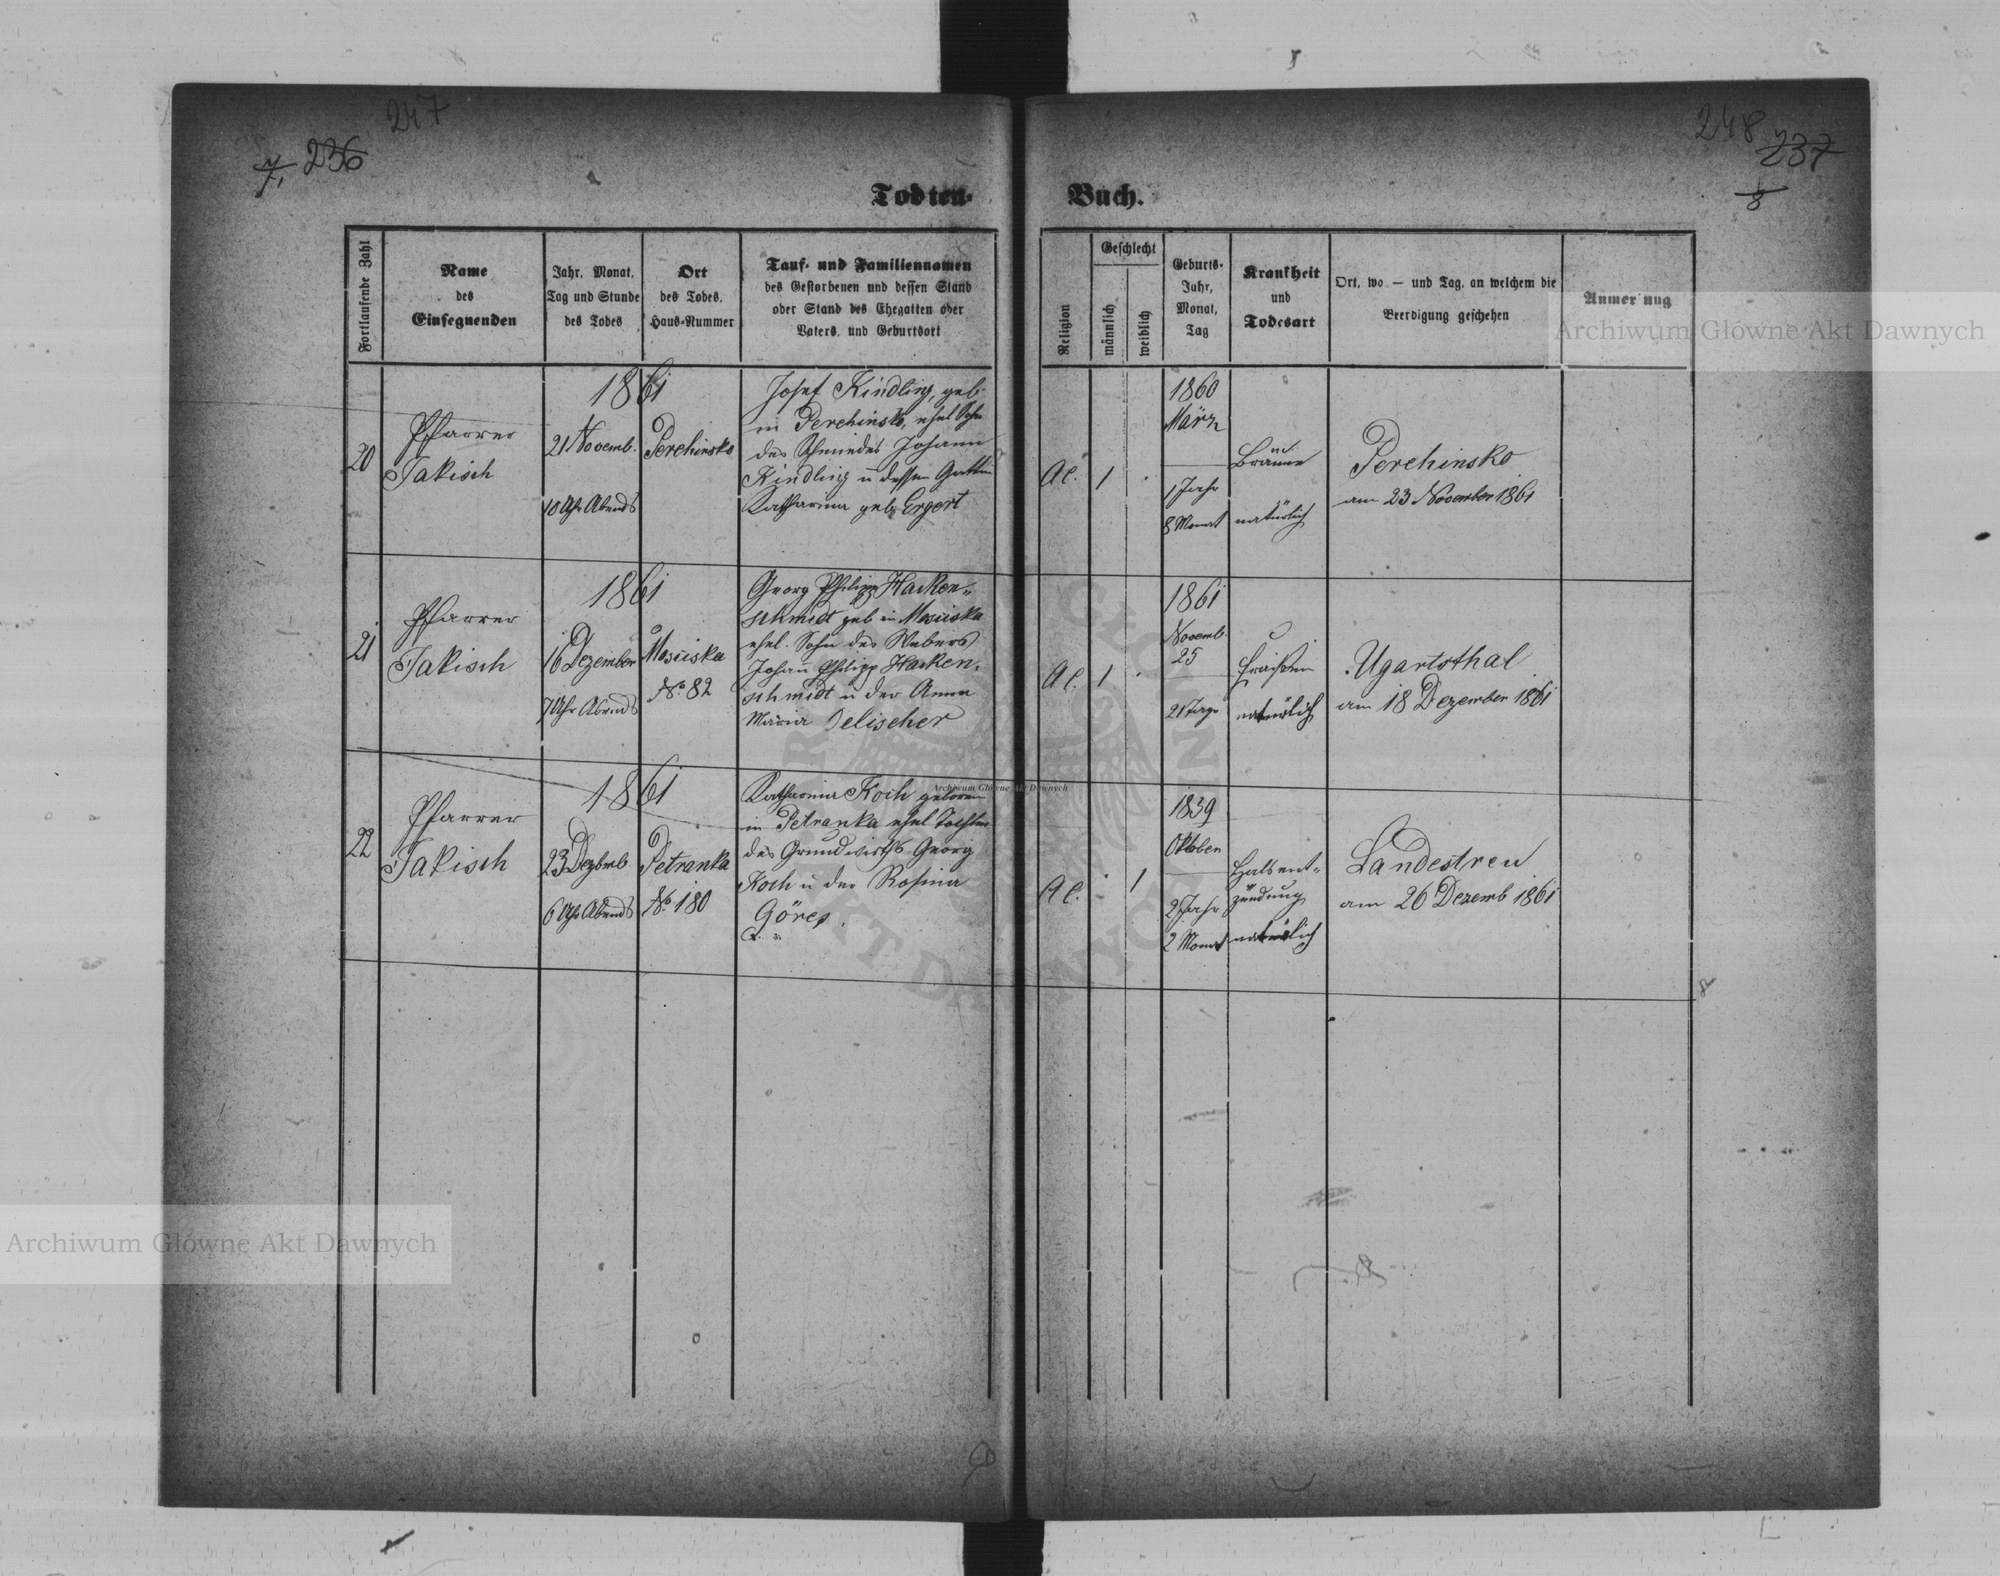 247
7. 236
248
237
8
Todten-
Buch.
Fortlaufende Zahl
Name
des
Einsegnenden
Jahr, Monat,
Tag und Stunde
des Todes
Ort
des Todes,
Haus-Nummer
Tauf- und Familiennamen
des Gestorbenen und dessen Stand
oder Stand des Ehegatten oder
Vaters, und Geburtsort
Religion
Geschlecht
männlich
weiblich
Geburts-
Jahr,
Monat,
Tag
Krankheit
und
Todesart
Ort, wo — und Tag, an welchem die
Beerdigung geschehen
Anmer nug
20
Pfarrer
Jakisch
1861
21 Novemb.
10 Uhr Abends
Perehinsko
Josef Kindling, geb.
in Perehinsko, ehel Sohn
des Schmiedes Johann
Kindling u dessen Gattin
Katharina geb Ergert
AC.
1
1860
März
1 Jahr
8 Monat
Bräune
natürlich
Perehinsko
am 23 November 1861
21
Pfarrer
Jakisch
1861
16 Dezember
7 Uhr Abends
Mosciska
No. 82
Georg Philipp Hacken-
schmidt geb in Mosciska
ehel. Sohn des Webers
Johann Philipp Hacken-
schmidt u der Anna
Maria Delischer
AC.
1
1861
Novemb.
25
21 Tage
Fraisen
natürlich
Ugartsthal
am 18 Dezember 1861
22
Pfarrer
Jakisch
1861
23 Dezbmb
6 Uhr Abends
Petranka
No. 180
Katharina Koch geboren
in Petranka ehel Tochter
des Grundwirths Georg
Koch u der Rosina
Göres.
AC.
1
1839
Oktober
2 Monat
Halsent-
zündung
natürlich
Landestreu
am 26 Dezemb 1861
Archiwum Główne Akt Dawnych
Archiwum Główne Akt Dawnych
Archiwum Główne Akt Dawnych